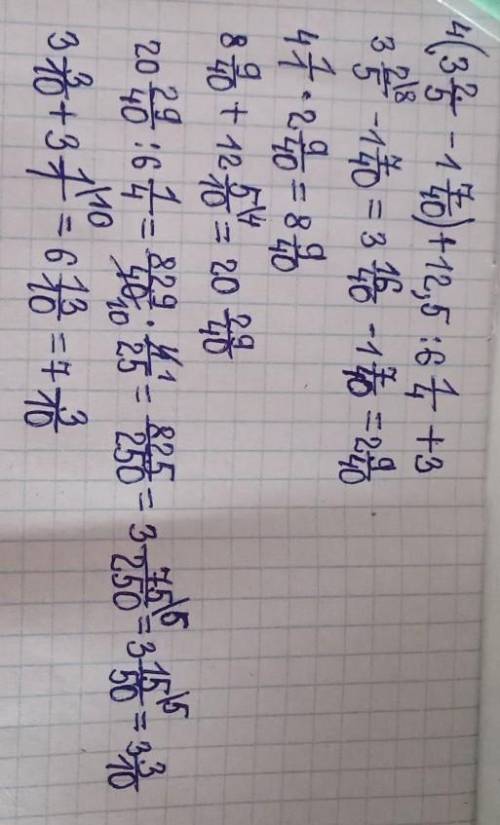 4(3 2/5 - 1 7/40) + 12,5 : 6 1/4 + 3
3 2\8/5 - 1 7/40 = 3 16/40 - 1 7/40 = 2 9/40
4 1/1 · 2 9/40 = 8 9/40
8 9/40 + 12 5\4/10 = 20 29/40
20 29/40 : 6 1/4 = 829/40 10 · 4 1/25 = 825/250 = 3 75\5/250 = 3 15\5/50 = 3 3/10
3 3/10 + 3 1\10/1 = 6 13/10 = 7 3/10